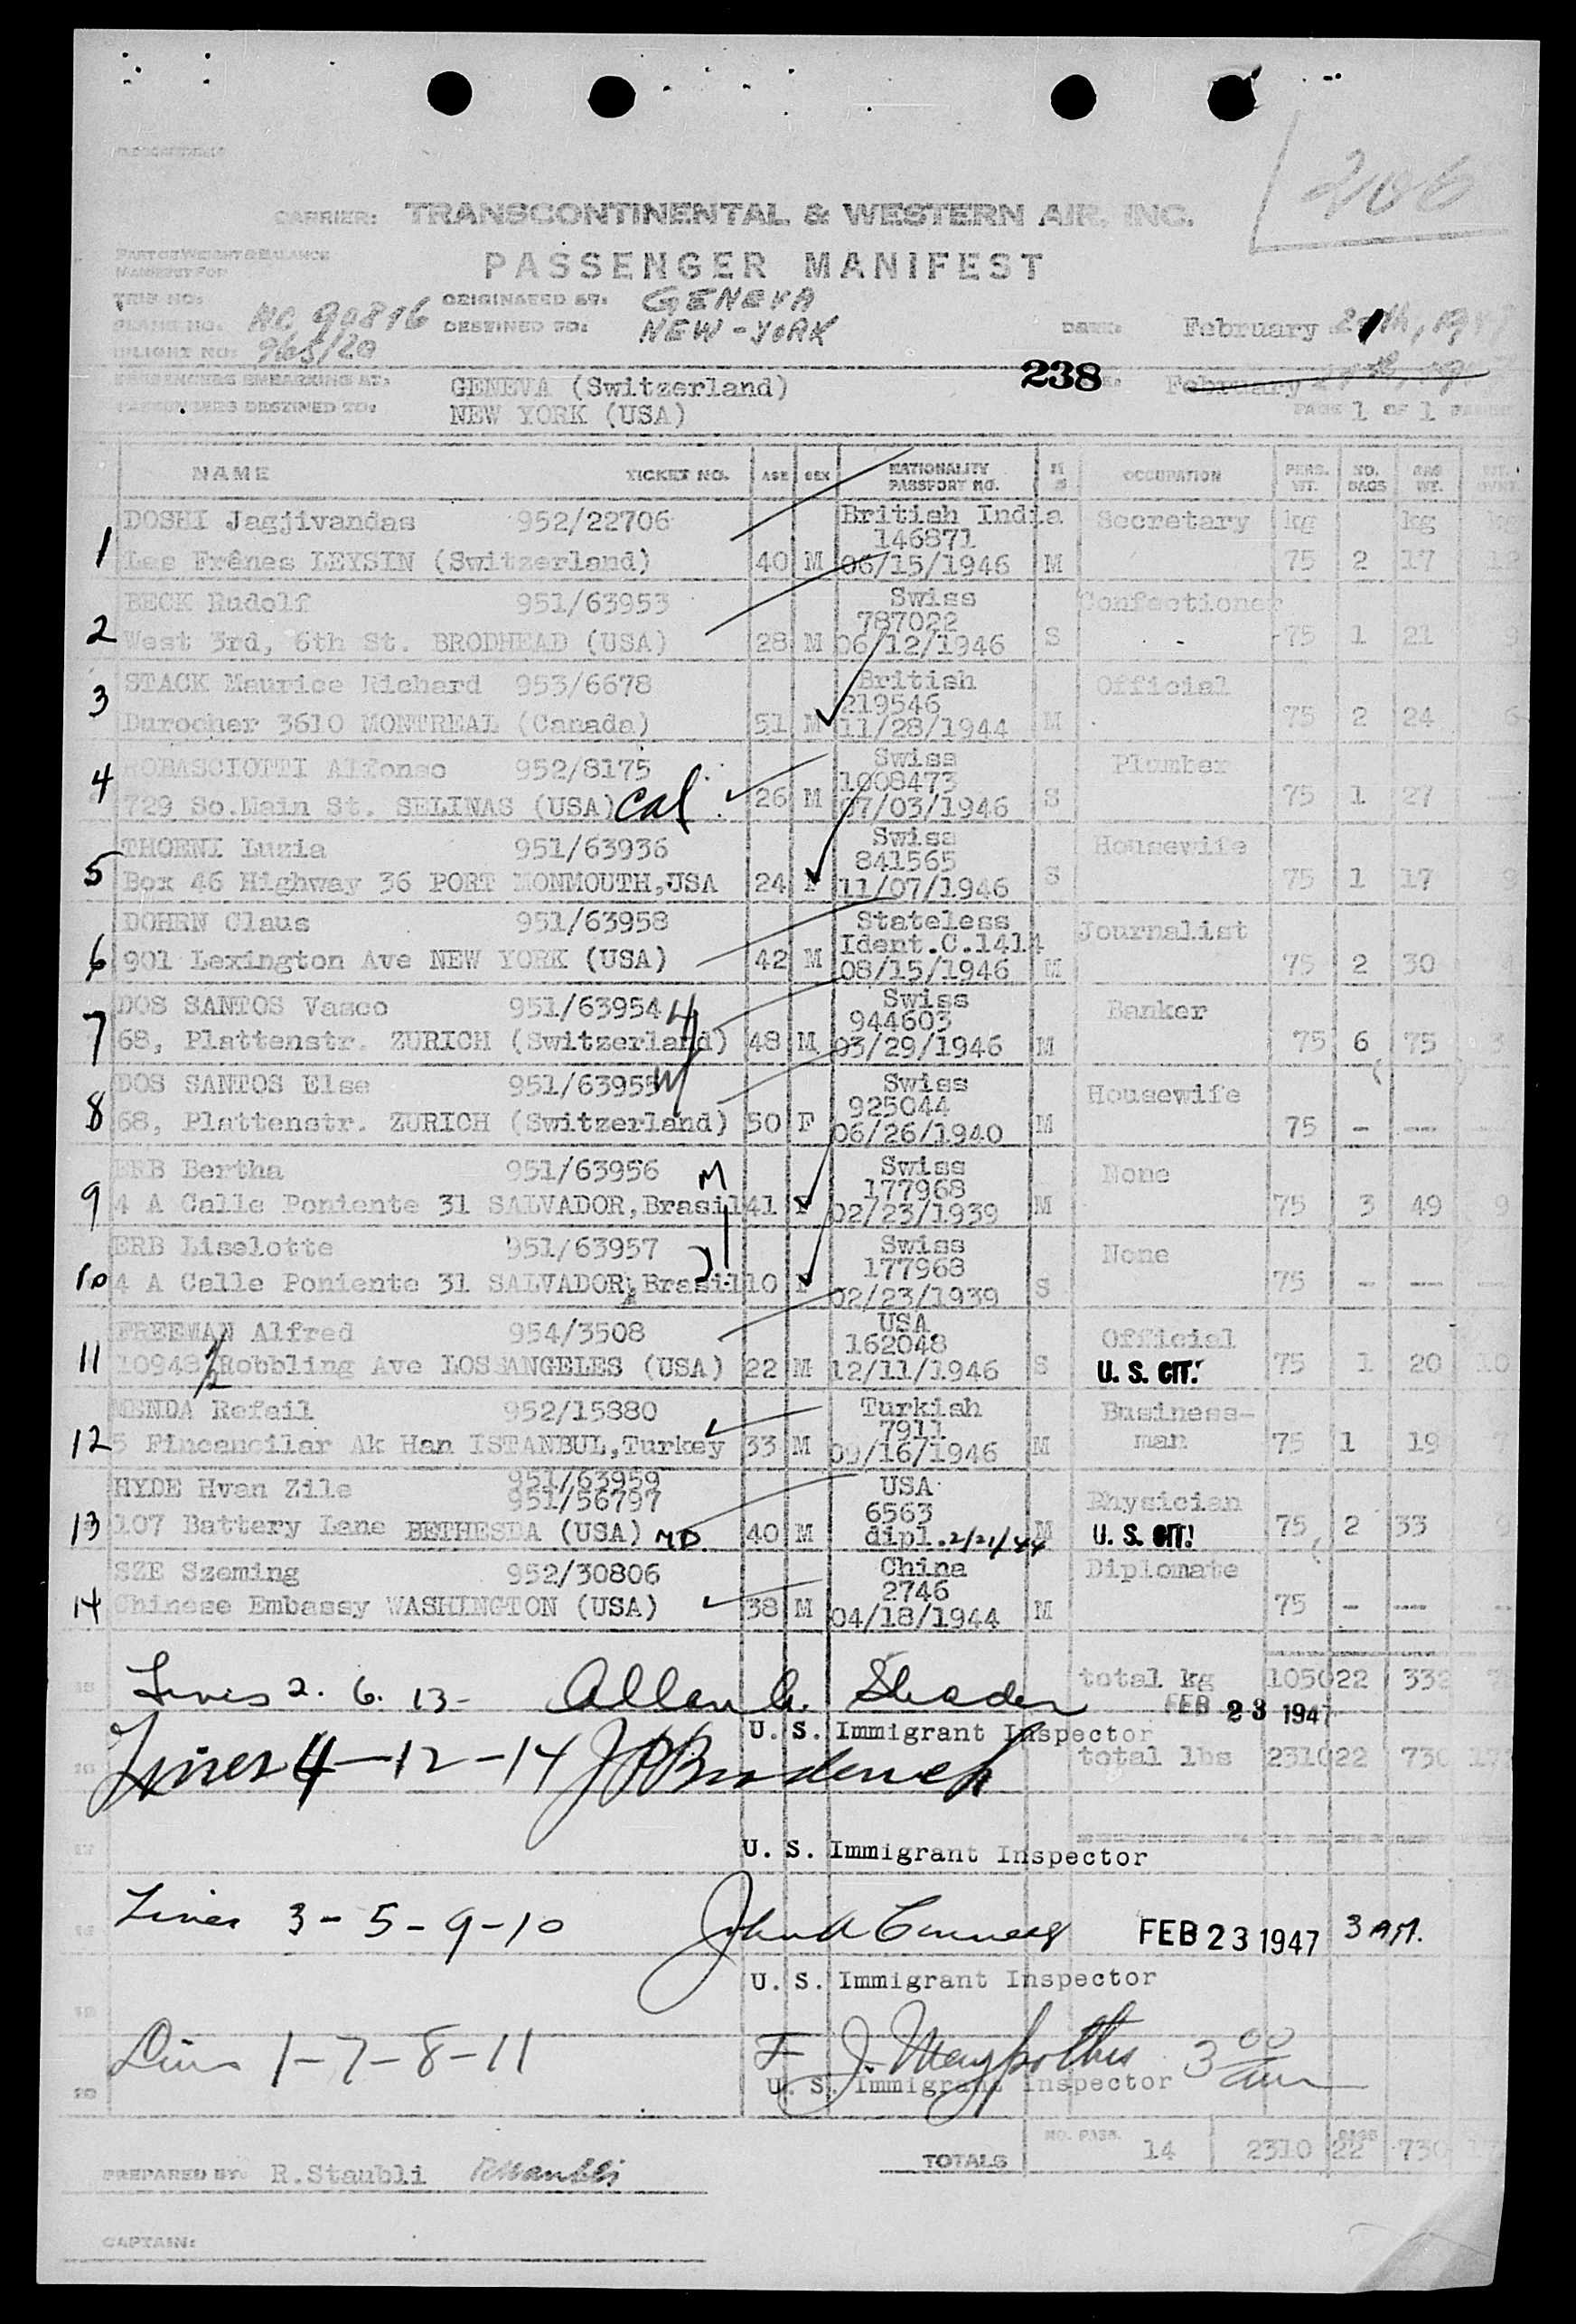 206
CARRIER: TRANSCONTINENTAL & WESTERN AIR, INC.
PART OF WEIGHT & BALANCE
MANIFEST FOR
PASSENGER MANIFEST
TRIP NO:
ORIGINATED AT: GENEVA
PLANE NO. NC 90816
DESTINED TO: NEW-YORK
DATE: February
FLIGHT NO: 965/20
238
PASSENGERS EMBARKING AT: GENEVA (Switzerland)
February
PASSENGERS DESTINED TO: NEW YORK (USA)
PAGE 1 OF 1
NAME TICKET NO. AGE SEX NATIONALITY PASSPORT NO. M S OCCUPATION PERS. WT. NO. BAGS BAG WT.
1 DOSHI Jagjivandas 952/22706 British India Secretary kg kg kg
146871
Les Frênes LEYSIN (Switzerland) 40 M 06/15/1946 M 75 2 17
2 BECK Rudolf 951/63953 Swiss Confectioner
787022
West 3rd, 6th St. BRODHEAD (USA) 28 M 06/12/1946 S 75 1 21 9
3 STACK Maurice Richard 953/6678 British Official
219546
Durocher 3610 MONTREAL (Canada) 51 M 11/28/1944 M 75 2 24 6
4 ROBASCIOTTI Alfonso 952/8175 Swiss Plumber
1008473
729 So.Main St. SELINAS (USA) Cal. 26 M 07/03/1946 S 75 1 27 —
5 THOENI Luzia 951/63936 Swiss Housewife
841565
Box 46 Highway 36 PORT MONMOUTH,USA 24 F 11/07/1946 S 75 1 17 9
6 DOHRN Claus 951/63958 Stateless Journalist
Ident.C.1414
901 Lexington Ave NEW YORK (USA) 42 M 08/15/1946 M 75 2 30
7 DOS SANTOS Vasco 951/63954 H Swiss Banker
944603
68, Plattenstr. ZURICH (Switzerland) 48 M 03/29/1946 M 75 6 75 3
8 DOS SANTOS Else 951/63955 W Swiss Housewife
925044
68, Plattenstr. ZURICH (Switzerland) 50 F 06/26/1940 M 75 - --
9 ERB Bertha 951/63956 M Swiss None
177968
4 A Calle Poniente 31 SALVADOR,Brasil 41 F 02/23/1939 M 75 3 49 9
10 ERB Liselotte 951/63957 D Swiss None
177968
4 A Calle Poniente 31 SALVADOR,Brasil 10 F 02/23/1939 S 75 - --
11 FREEMAN Alfred 954/3508 USA Official
162048
10948 1/2 Robbling Ave LOS ANGELES (USA) 22 M 12/11/1946 S U. S. CIT. 75 1 20 10
12 MENDA Refail 952/15880 Turkish Business-
7911 man
5 Fincancilar Ak Han ISTANBUL,Turkey 33 M 09/16/1946 M 75 1 19 7
13 HYDE Hvan Zile 951/63959 USA Physician
951/56797 6563
107 Battery Lane BETHESDA (USA) MD. 40 M dipl. 2/21/44 M U. S. CIT. 75 2 33 9
14 SZE Szeming 952/30806 China Diplomate
2746
Chinese Embassy WASHINGTON (USA) 38 M 04/18/1944 M 75 - --
15 Lines 2. 6. 13- total kg 1050 22 332
FEB 23 1947
U. S. Immigrant Inspector
16 Lines 4-12-14 total lbs 2310 22 730
17 U. S. Immigrant Inspector
18 Lines 3-5-9-10 FEB 23 1947 3 AM.
19 U. S. Immigrant Inspector
Lines 1-7-8-11 3 00 am
20 U. S. Immigrant Inspector
TOTALS NO. PASS. 14 2310 BAGS 22 730
PREPARED BY: R.Staubli RStaubli
CAPTAIN: